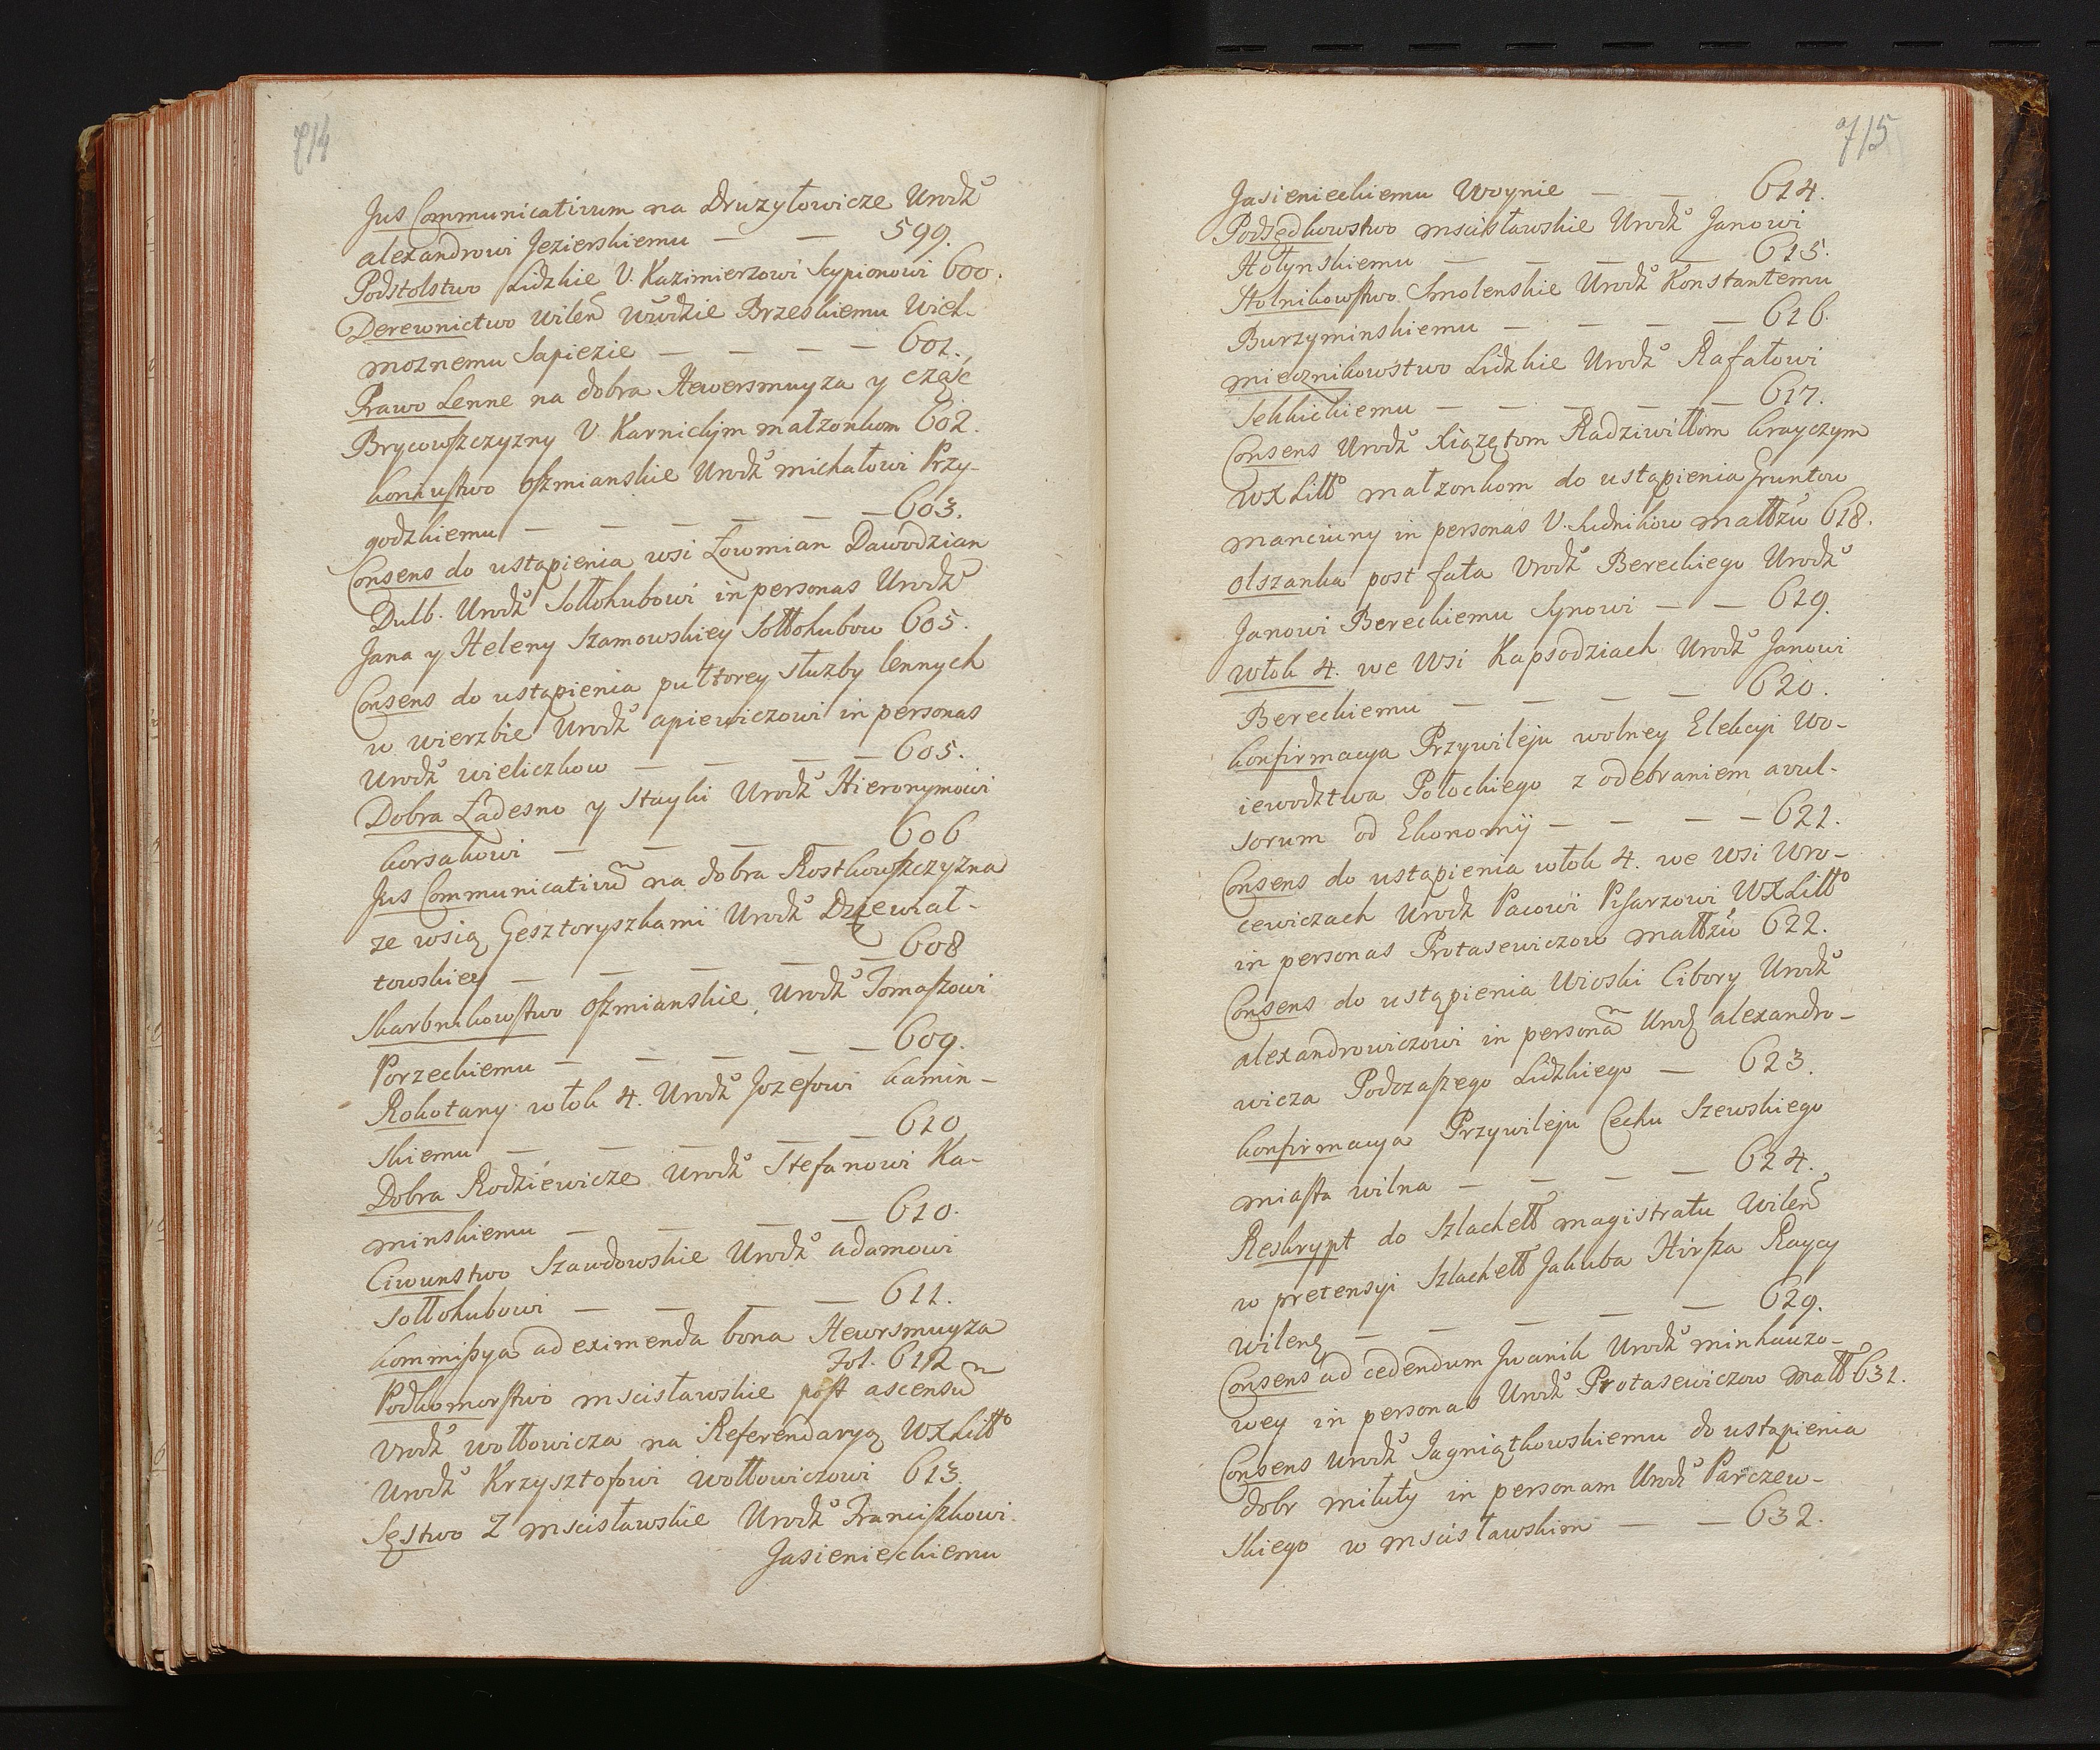 714
Jus Communicativum na Druzyłowicze Urodz°
alexandrowi Jezierskiemu — — 599.
Podstolstwo Lidzkie U. Kazimierzowi Scypionowi 600.
Derewnictwo wileń Brzeskiemu Wiel-
moznemu Sapiezie — — — — 601.
Prawo Lenne na dobra Hewersmuyza y część
Brycowszczyzny U. Karnickim małzonkom 602.
koniustwo oszmianskie Urodz° michałowi Przy-
godzkiemu — — — — — 603.
Consens do ustąpienia wsi Łowmian Dawodzian
Dulb. Urodz° Sołłohubowi in personas Urodz°
Jana y Heleny Szamowskiey Sołłohubow 605.
Consens do ustąpienia pułtorey słuzby lennych
w wierzbie Urodz° apiewiczowi in personas
Urodz° wieliczkow — — — — 605.
Dobra Ładesno y Stayki Urodz° Hieronymowi
korsakowi — — — — 606
Jus Communicativū na dobra Rostkowszczyzna
ze wsią Gesztoryszkami Urodz° Dziewiał-
towskiey — — — — — 608
Skarbnikowstwo oszmianskie Urodz° Tomaszowi
Porzeckiemu — — — — — 609.
Rokotany włok 4. Urodz° Jozefowi kamin-
skiemu — — — — — 610
Dobra Rodziewicze Urodz° Stefanowi Ka-
minskiemu — — — — 610.
Ciwunstwo Szawdowskie Urodz° adamowi
sołłohubowi — — — — 611.
kommissya ad eximenda bona Hewrsmuyza
Fol. 612
Podkomorstwo mscisławskie post ascensū
Urodz° wołłowicza na Referendaryą WXLitt°
Urodz° Krzysztofowi wołłowiczowi 613.
Sęstwo Z mscisławskie Urodz° Franciszkowi
Jasienieckiemu
715
Jasienieckiemu Woynie — — 614.
Podsędkowstwo mscisławskie Urodz° Janowi
Hołynskiemu — — — — 615.
Stolnikowstwo Smolenskie Urodz° Konstantemu
Burzyminskiemu — — — — 616.
miecznikowstwo Lidzkie Urodz° Rafałowi
— — — — — 617.
Consens Urodz° Xiązętom Radziwiłłom krayczym
WXLitt° małzonkom do ustąpienia Gruntow
in personas U. Rudnikow małłzū 618.
olszanka post fata Urodz° Bereckiego Urodz°
Janowi Bereckiemu Synowi — — 619.
włok 4. we wsi Kapsodziach Urodz° Janowi
Bereckiemu — — — — 620.
konfirmacya Przywileju wolney Elekcyi Wo-
iewodztwa Połockiego z odebraniem avul-
sorum od Ekonomij — — — — 621.
Consens do ustąpienia włok 4. we wsi Uro-
cewiczach Urodz Pacowi Pisarzowi WXLitt°
in personas Protasewiczow małłzū 622.
Consens do ustąpienia Wioski Cibory Urodz°
alexandrowiczowi in personā Urodz alexandro-
wicza Podczaszego Lidzkiego — 623.
konfirmacya Przywileju Cechu Szewskiego
miasta wilna — — — — 624.
Reskrypt do Szlachett magistratu Wileń
w pretensyi Szlachett Jakuba Hirsza Raycy
wileng — — — — — 629.
Consens ad cedendum Jwanik Urodz° minkauzo-
wey in personas Urodz° Protasewiczow małł 631.
Consens Urodz° Jagniątkowskiemu do ustąpienia
dobr miluty in personam Urodz° Parczew-
skiego w mscisławskim — — 632.